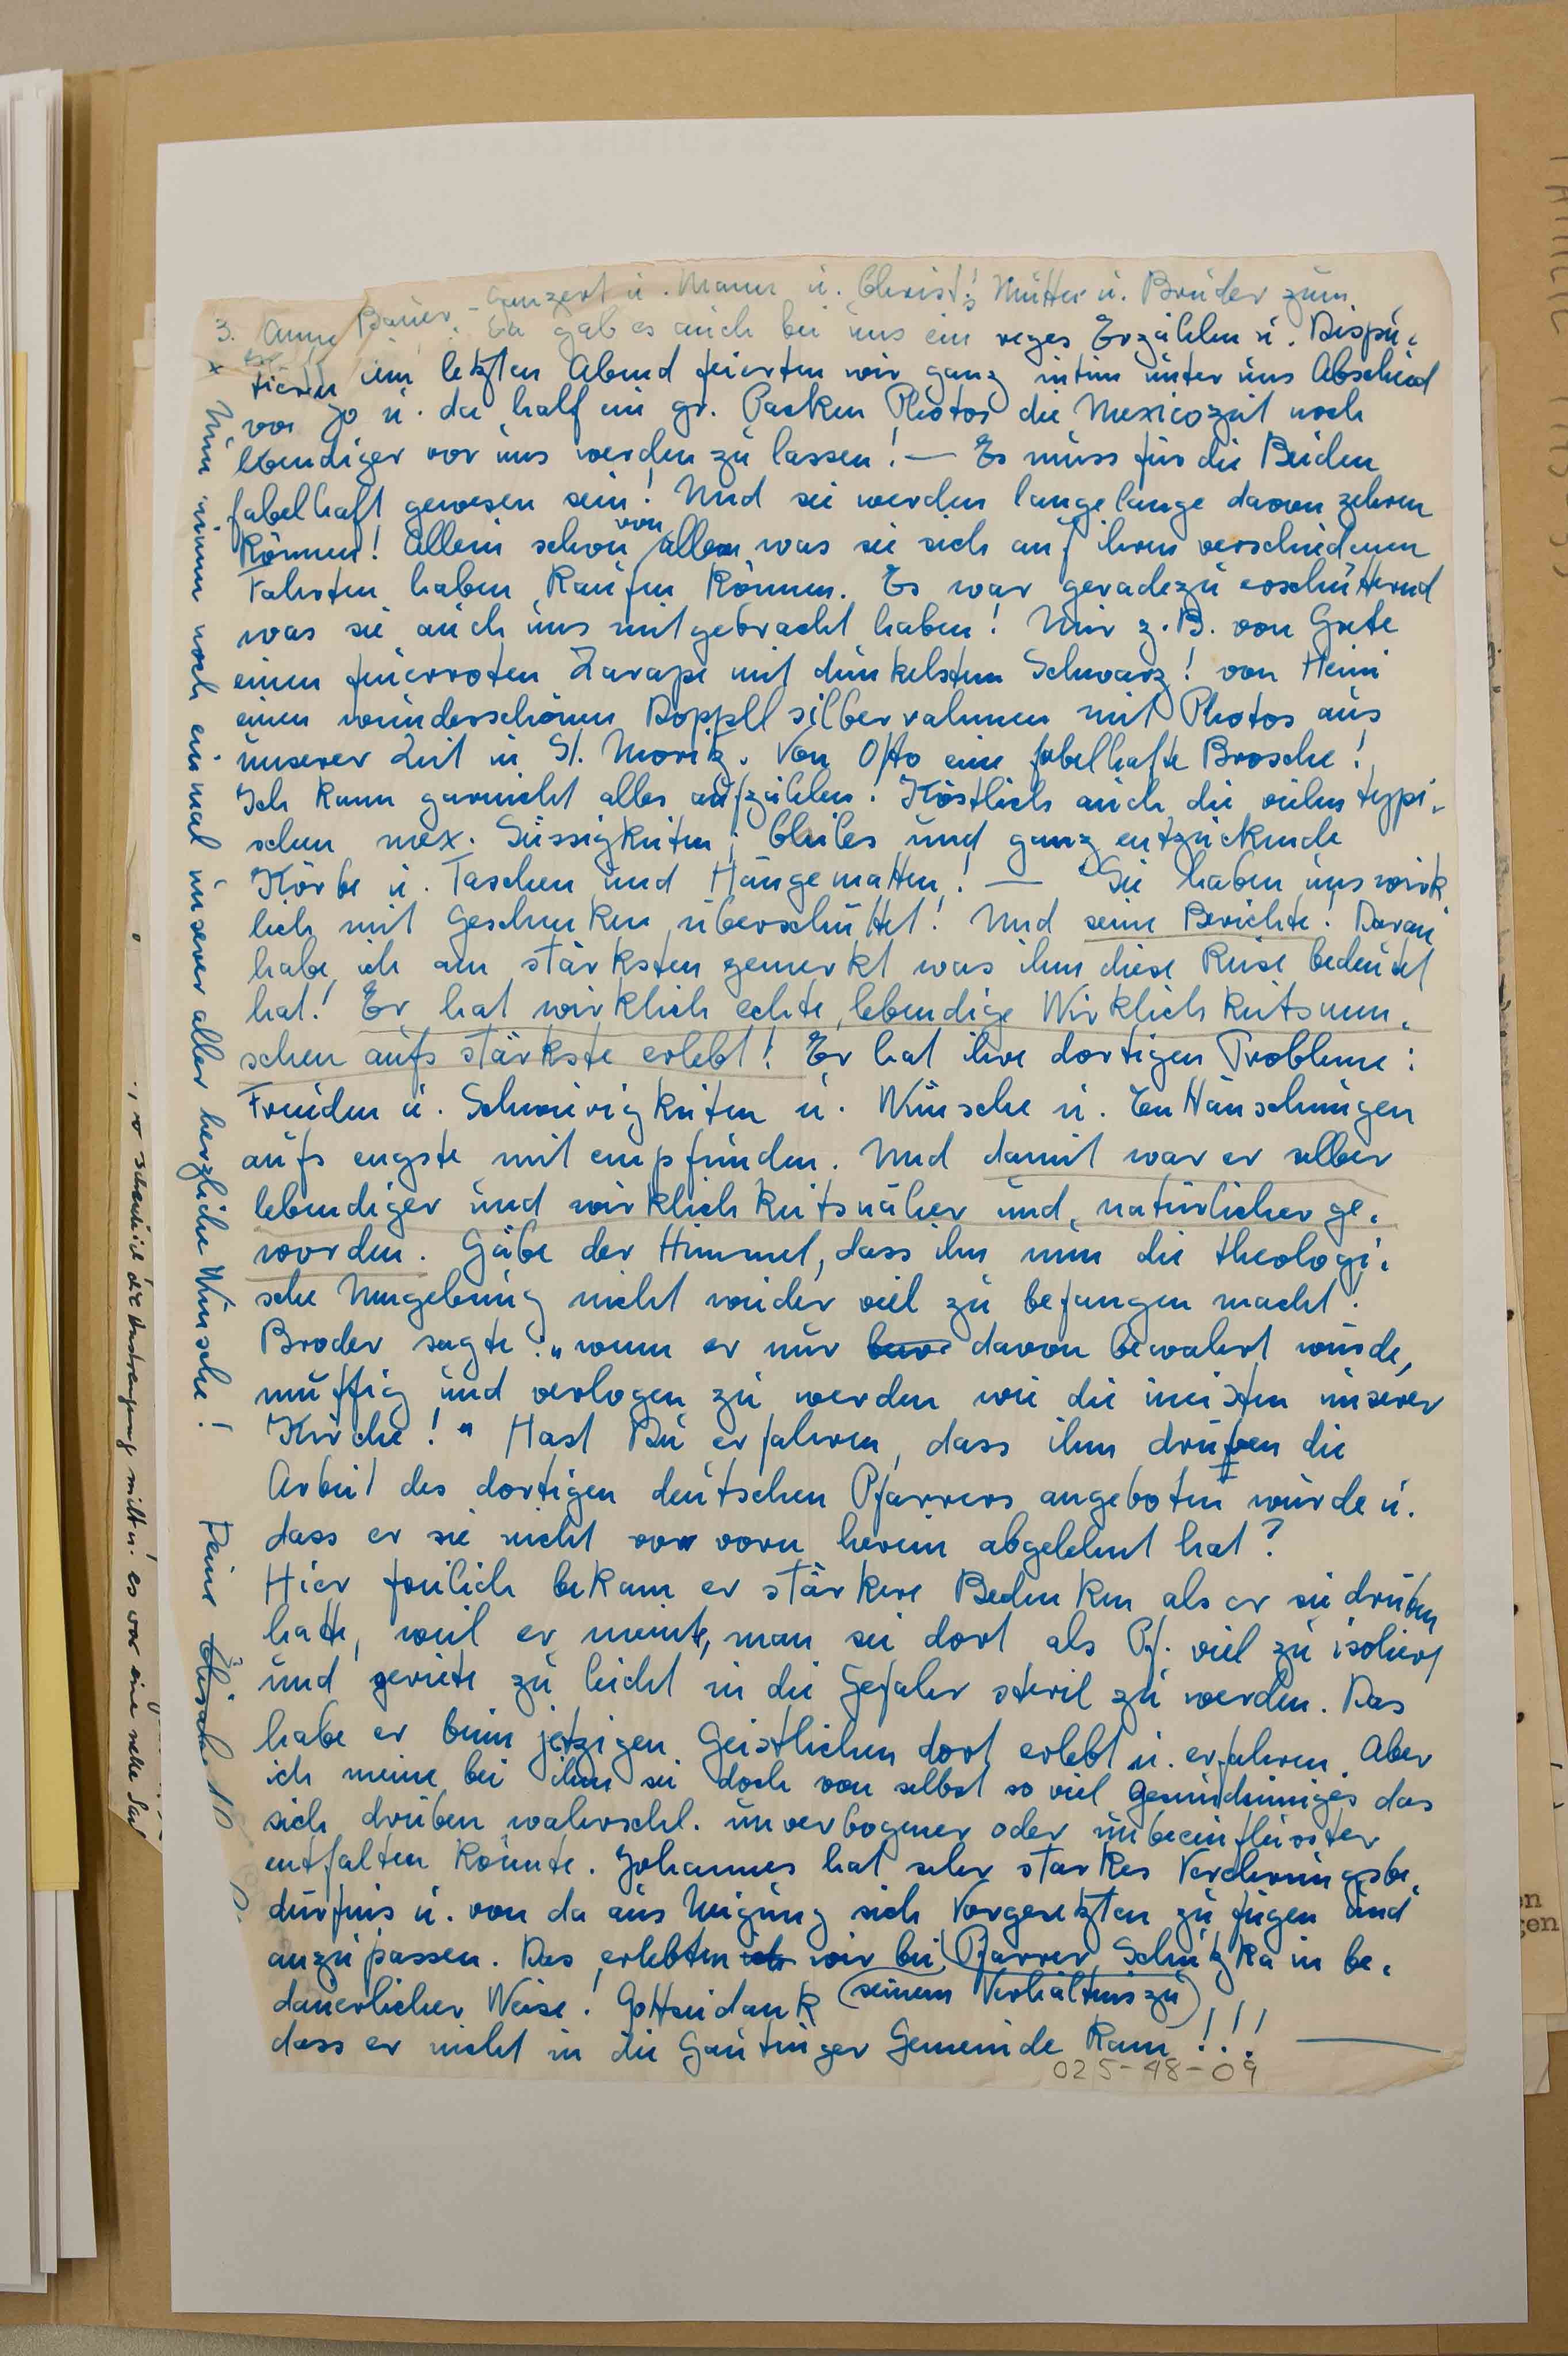 3. Anne Bauer - Ganzert u. Mann u. Christ; Mutter u. Bruder zum
Da gab es auch bei uns ein reges Erzählen u. Dispu-
tieren am letzten Abend feierten wir ganz intim unter uns Abschied
von Jo u. da half ein gr. Packen Photos die Mexicozeit noch
lebendiger vor uns werden zu lassen! — Es muss für die Beiden
fabelhaft gewesen sein! Und sie werden lange lange davon zehren
können! Allein schon von allem was sie sich auf ihren verschiedenen
Fahrten haben kaufen können. Es war geradezu erschütternd
was sie auch uns mitgebracht haben! Mir z.B. von Grete
einen feuerroten Zarape mit dunkelstem Schwarz! von Heini
einen wunderschönen Doppelsilberrahmen mit Photos aus
unserer Zeit in St. Moritz. Von Otto eine fabelhafte Brosche!
Ich kann garnicht alles aufzählen! Köstlich auch die vielen typi-
schen mex. Süssigkeiten; Chiles und ganz entzückende
Körbe u. Taschen und Hängematten! — Sie haben uns wirk
lich mit Geschenken überschüttet! Und seine Berichte! Daran
habe ich am stärksten gemerkt was ihm diese Reise bedeutet
hat! Er hat wirklich echte, lebendige Wirklichkeitsmen-
schen aufs stärkste erlebt! Er hat ihre dortigen Probleme:
Freuden u. Schwierigkeiten u. Wünsche u. Enttäuschungen
aufs engste mit empfunden. Und damit war er selber
lebendiger und wirklichkeitsnäher und natürlicher ge-
worden. Gäbe der Himmel, dass ihn nun die theologi-
sche Umgebung nicht wieder viel zu befangen macht!
Broder sagte: „wenn er nur davon bewahrt würde,
muffig und verlogen zu werden wie die meisten unserer
Kirche!" Hast Du erfahren, dass ihm drüben die
Arbeit des dortigen deutschen Pfarrers angeboten wurde u.
dass er sie nicht von vorn herein abgelehnt hat?
Hier freilich bekam er stärkere Bedenken als er sie drüben
hatte, weil er meinte, man sei dort als Pf. viel zu isoliert
und geriete zu leicht in die Gefahr steril zu werden. Das
habe er beim jetzigen Geistlichen dort erlebt u. erfahren. Aber
ich meine bei ihm sei doch von selbst so viel Gesundsinniges das
sich drüben wahrschl. unverbogener oder unbeeinflusster
entfalten könnte. Johannes hat sehr starkes Verehrungsbe-
dürfnis u. von da aus Neigung sich Vorgesetzten zu fügen und
anzupassen. Das erlebten wir bei (seinem Verhältnis zu) Pfarrer Schutzka in be-
dauerlicher Weise! Gottseidank
dass er nicht in die Gautinger Gemeinde kam!!! —
025-48-09
x Nun nimm noch einmal unser aller herzliche Wünsche!
Deine
so scheut ich die Anstrengung nicht u. es war eine nette